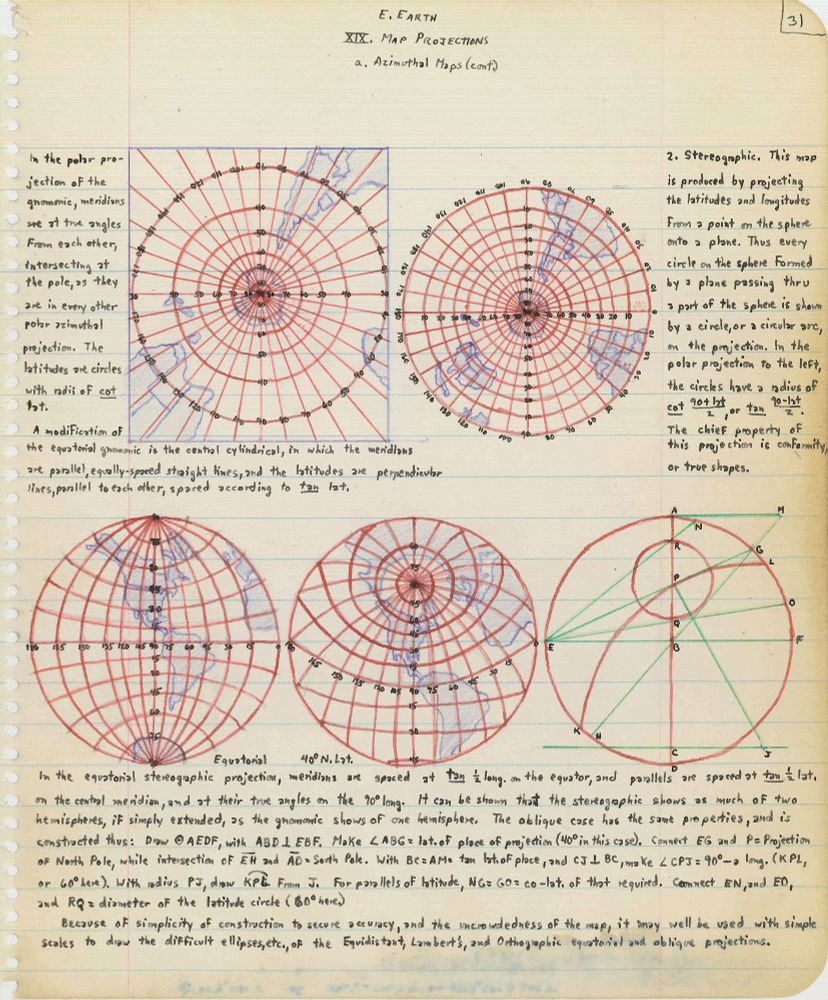 31
E. EARTH
XIX. MAP PROJECTIONS
a. Azimuthal Maps (cont.)
In the polar pro-
jection of the
gnomonic, meridians
are at true angles
from each other,
intersecting at
the pole, as they
are in every other
polar azimuthal
projection. The
latitudes are circles
with radii of cot
lat.
A modification of
the equatorial gnomonic is the central cylindrical, in which the meridians
are parallel, equally-spaced straight lines, and the latitudes are perpendicular
lines, parallel to each other, spaced according to tan lat.
2. Stereographic. This map
is produced by projecting
the latitudes and longitudes
from a point on the sphere
onto a plane. Thus every
circle on the sphere formed
by a plane passing thru
a part of the sphere is shown
by a circle, or a circular arc,
on the projection. In the
polar projection to the left,
the circles have a radius of
cot 90+lat/2, or tan 90-lat/2.
The chief property of
this projection is conformity,
or true shapes.
A M
N
R
G
L
P
O
Q
E B F
K H
C J
D
Equatorial 40° N. Lat.
In the equatorial stereographic projection, meridians are spaced at tan ½ long. on the equator, and parallels are spaced at tan ½ lat.
on the central meridian, and at their true angles on the 90° long. It can be shown that the stereographic shows as much of two
hemispheres, if simply extended, as the gnomonic shows of one hemisphere. The oblique case has the same properties, and is
constructed thus: Draw ⊙AEDF, with ABD ⊥ EBF. Make ∠ABG = lat. of place of projection (40° in this case). Connect EG and P = Projection
of North Pole, while intersection of EH and AD = South Pole. With BC = AM = tan lat. of place, and CJ ⊥ BC, make ∠CPJ = 90° - a long. (KPL,
or 60° here). With radius PJ, draw KPL from J. For parallels of latitude, NG = GO = co-lat. of that required. Connect EN, and EO,
and RQ = diameter of the latitude circle (60° here)
Because of simplicity of construction to secure accuracy, and the incrowdedness of the map, it may well be used with simple
scales to draw the difficult ellipses, etc., of the Equidistant, Lambert's, and Orthographic equatorial and oblique projections.